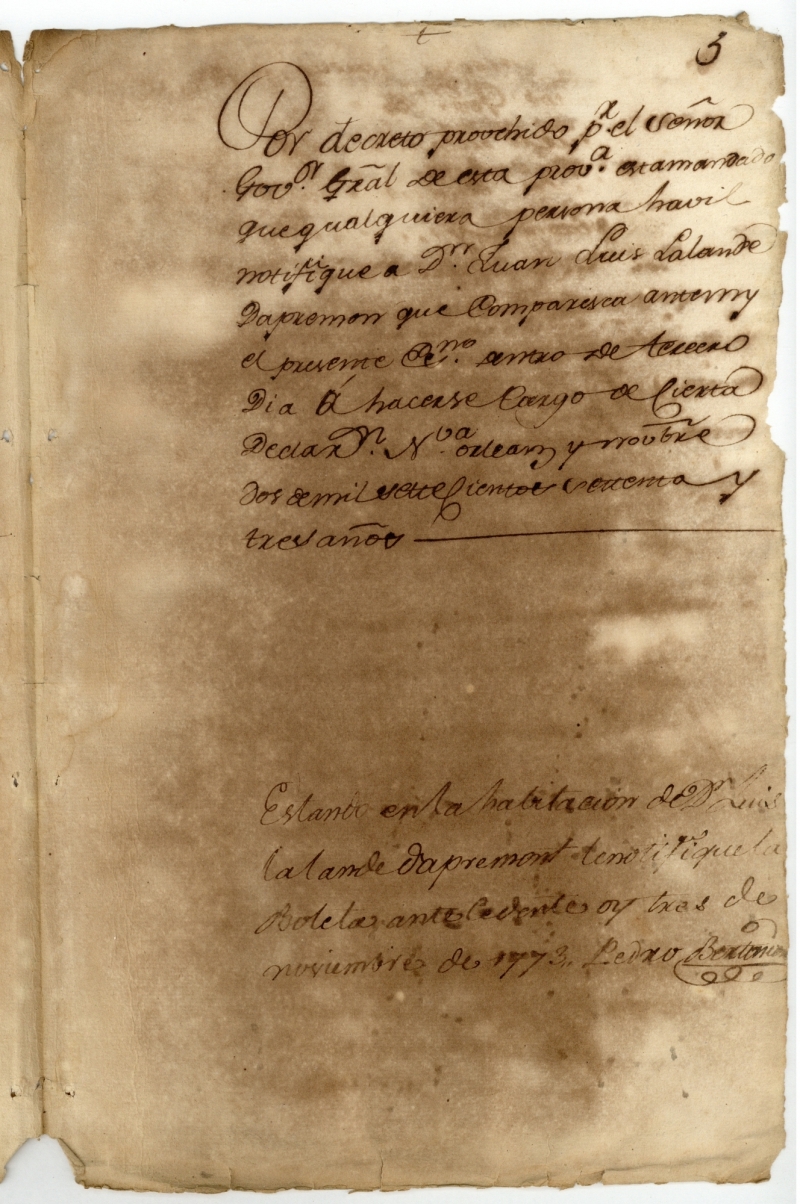 5
Por decreto provehido pr el señor
Govor Gral de esta prova esta mandado
que qualquiera persona havil
notifique a Dn Luan Luis Lalande
Dapremon que Comparesca antemy
el presente Esno dentro de tercero
Dia á hacerse Cargo de Cierta
Declaron. Nva orleans y novbre
dos de mil sette Cientos settenta y
tres años
Estando en la habitacion de Dn Luis
lalande dapremont le notifique la
Boleta antecedente oy tres de
noviembre de 1773. Pedro Bertonie